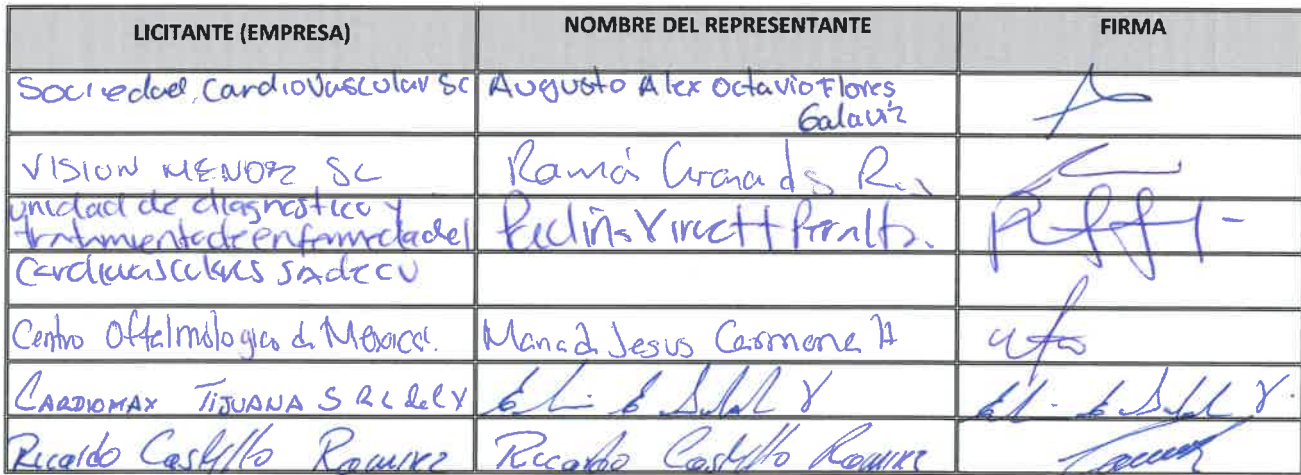 LICITANTE (EMPRESA) NOMBRE DEL REPRESENTANTE FIRMA
Sociedad Cardiovascular SC Augusto Alex Octavio Flores
Galaviz
VISION MENDOZ SC Ramón Granados R.
unidad de diagnostico y
tratamiento de enfermedades Peralta.
Cardiovasculares SA de CV
Centro Oftalmologico de Mexicali. Maria de Jesus Carmona H
CARDIOMAX TIJUANA S RL
Ricardo Castillo Ramirez Ricardo Castillo Ramirez